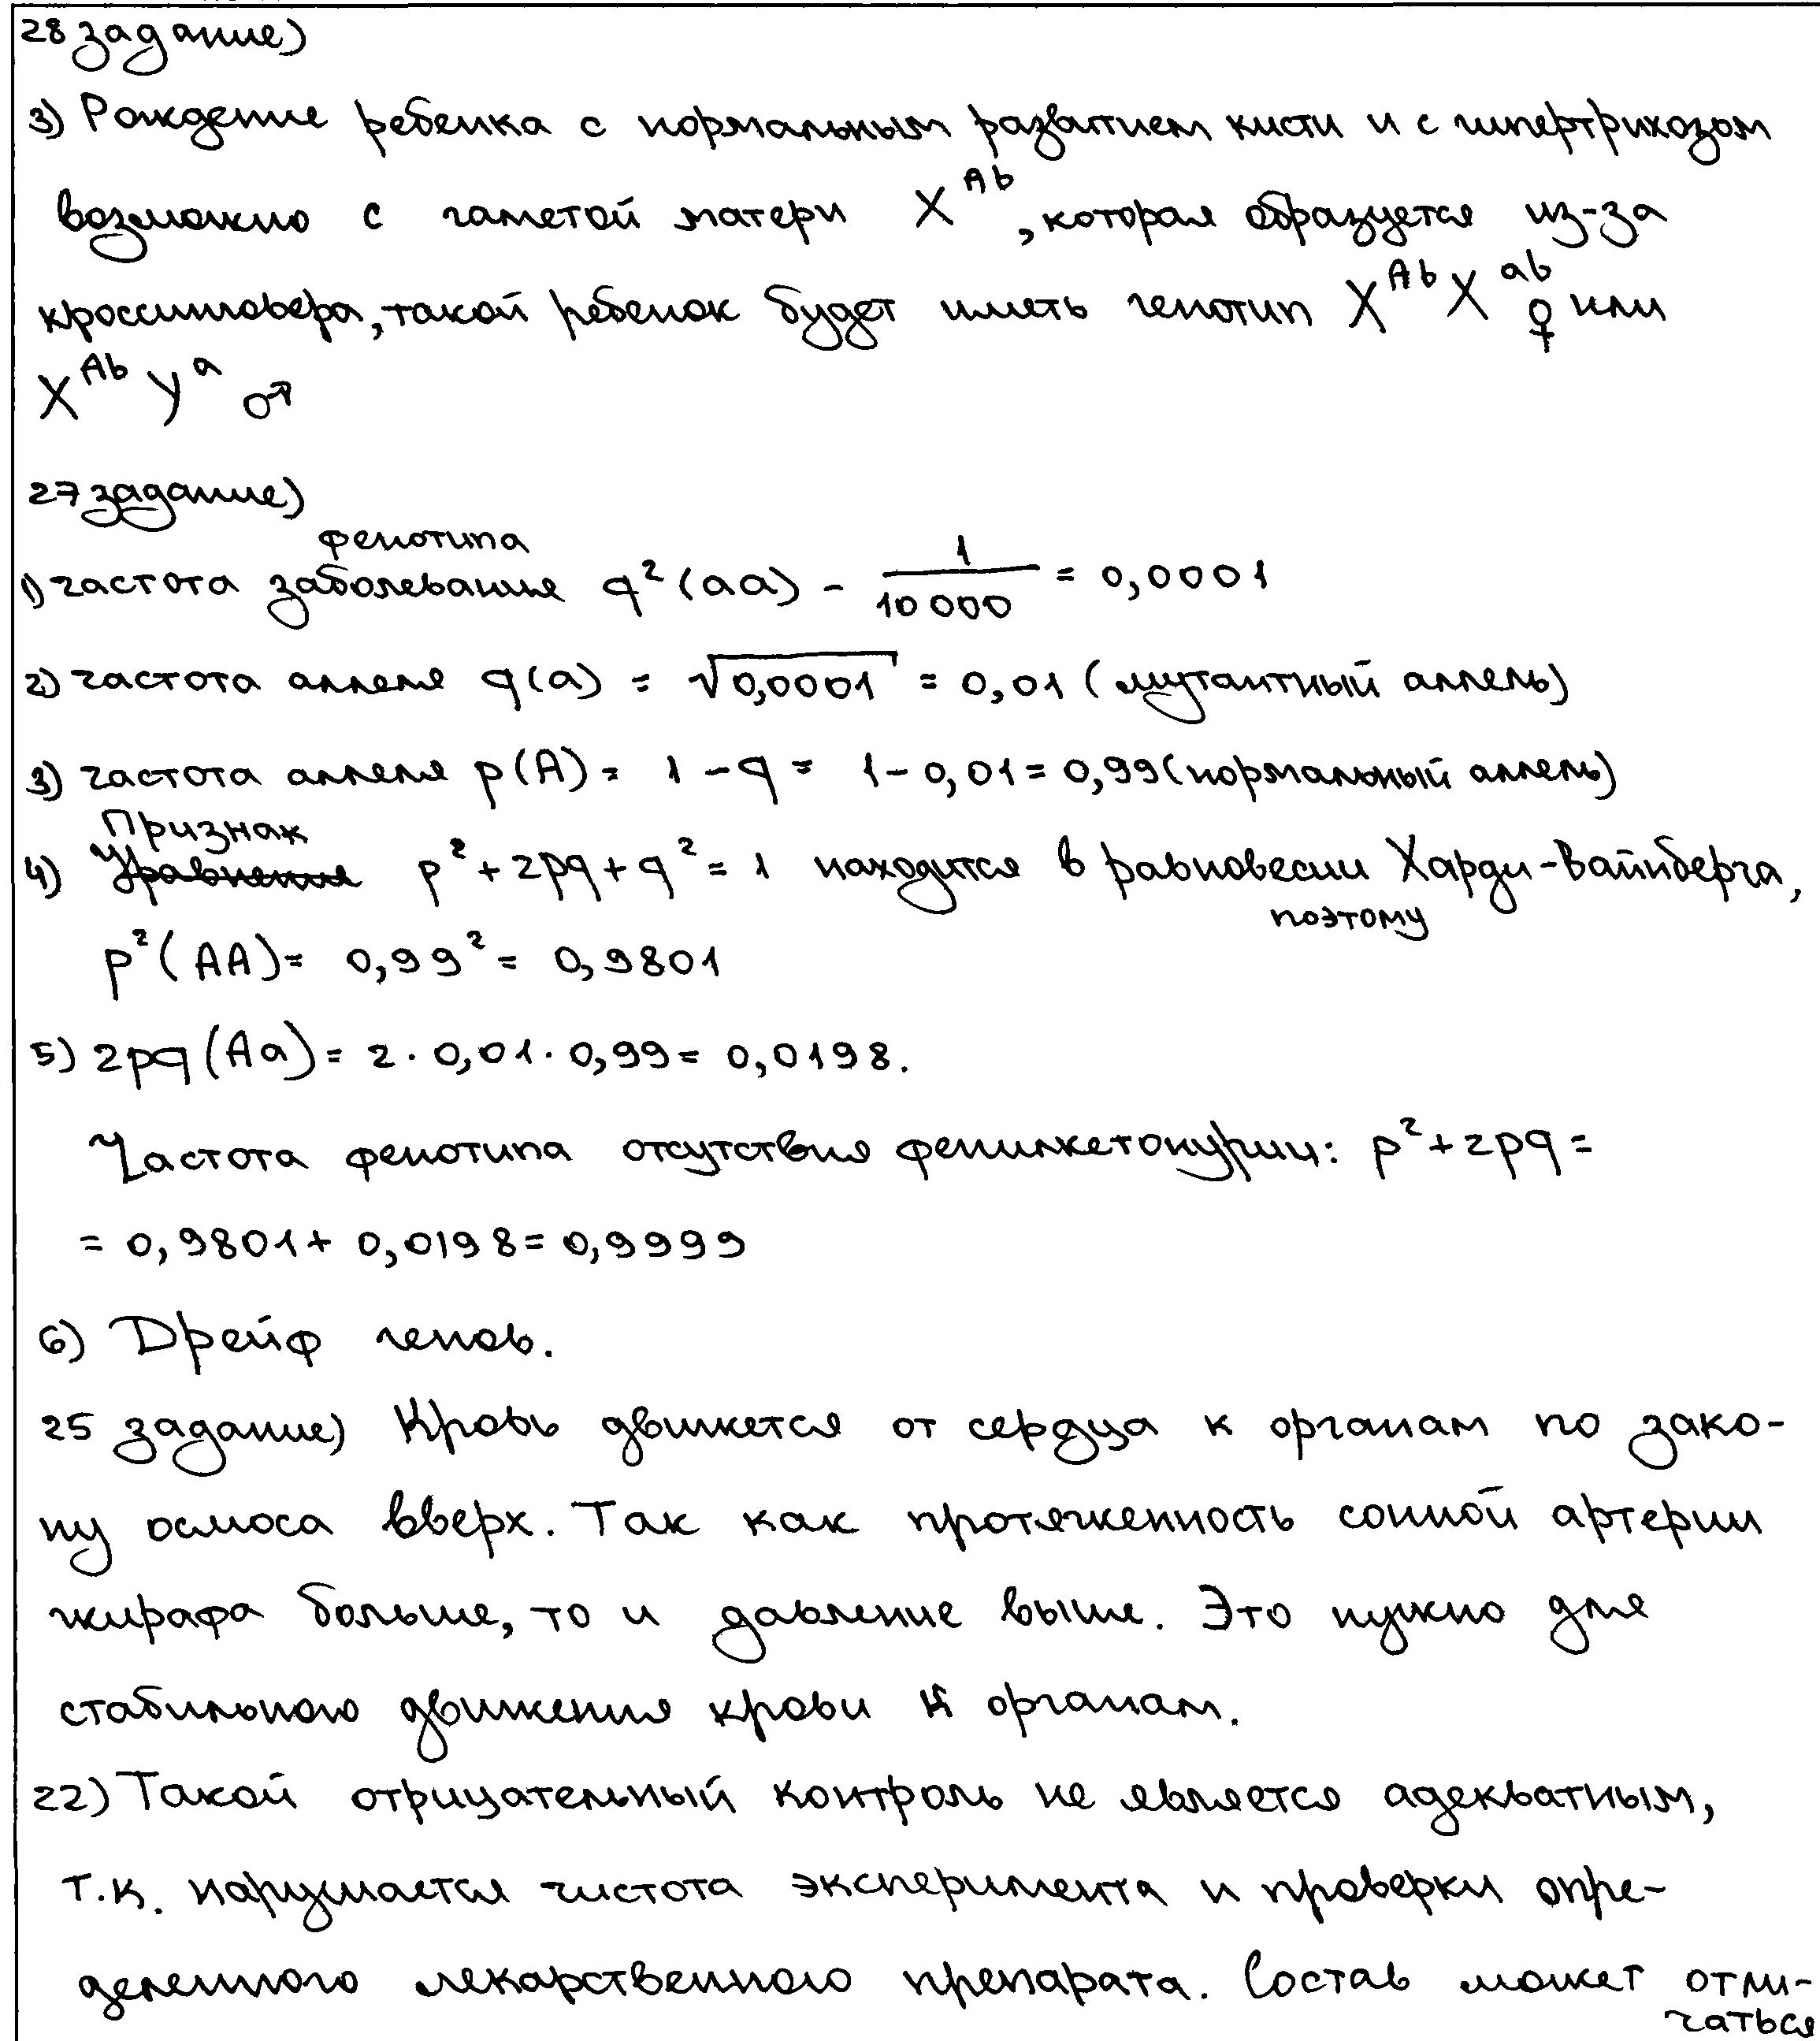 28 задание)
3) Рождение ребенка с нормальным развитием кисти и с гипертрихозом
возможно с гаметой матери X^Ab, которая образуется из-за
кроссинговера, такой ребенок будет иметь генотип X^Ab X^ab ♀ или
X^Ab Y^a ♂
27 задание)
фенотипа
1) частота заболевание q²(aa) - 1/10 000 = 0,0001
2) частота аллеля q(a) = √0,0001 = 0,01 (мутантный аллель)
3) частота аллеля p(A) = 1 - q = 1 - 0,01 = 0,99 (нормальный аллель)
Признак
4) Уравнение p² + 2pq + q² = 1 находится в равновесии Харди-Вайнберга,
поэтому
p²(AA) = 0,99² = 0,9801
5) 2pq (Aa) = 2 · 0,01 · 0,99 = 0,0198.
Частота фенотипа отсутствия фенилкетонурии: p² + 2pq =
= 0,9801 + 0,0198 = 0,9999
6) Дрейф генов.
25 задание) Кровь движется от сердца к органам по зако-
ну осмоса вверх. Так как протяженность сонной артерии
жирафа больше, то и давление выше. Это нужно для
стабильного движения крови к органам.
22) Такой отрицательный контроль не является адекватным,
т.к. нарушается чистота эксперимента и проверки опре-
деленного лекарственного препарата. Состав может отли-
чаться